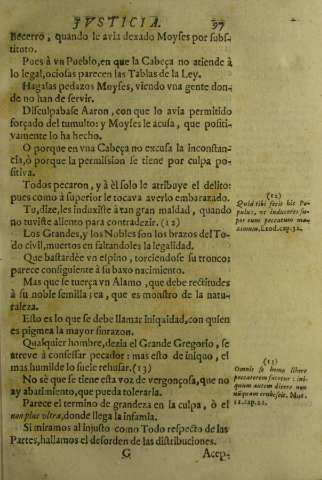 JVSTICIA. 97
Becerro, quando le avia dexado Moyses por substitoto.
Pues à vn Pueblo, en que la Cabeça no atiende à
lo legal, ociosas parecen las Tablas de la Ley.
Hagalas pedazos Moyses, viendo vna gente donde
no han de servir.
Disculpabase Aaron, con que lo avia permitido
forçado del tumulto: y Moyses le acusa, que positivamente
lo ha hecho.
O porque en vna Cabeça no excusa la inconstancia,
ò porque la permission se tiene por culpa positiva.
Todos pecaron, y à èl solo le atribuye el delito:
pues como à superior le tocava averlo embarazado.
Tu, dize, les induxiste à van gran maldad, quando
no tuviste aliento para contradezir. (12)
Los Grandes, y los Nobles son los brazos del Todo
civil, muertos en faltandoles la legalidad.
Que bastardèe vn espino, torciendose su tronco:
parece consiguiente à su baxo nacimiento.
Mas que se tuerça vn Alamo, que debe rectitudes
à su noble semilla; ea, que es monstro de la naturaleza.
Esto es lo que se debe llamar iniquidad, con quien
es pigmea la mayor sinrazon.
Qualquier hombre, dezia el Grande Gregorio, se
atreve à confessar pecador: mas esto de iniquo, el
mas humilde lo suele rehusar. (13)
No sè que se tiene esta voz de vergonçosa, que no
ay abatimiento, que pueda tolerarla.
Parece el termino de grandeza en la culpa, ò el
non plus ultra, donde llega la infamia.
Si miramos al injusto como Todo respecto de las
Partes, hallamos el desorden de las distribuciones.
G Acep-
(12)
Quid tibi fecit hic Populus,
ut induceres super
eum peccatum maximum,
Exod. cap. 32.
(13)
Omnis se homo libere
peccatorem fatetur: iniquum
autem dicere non
nunquam erubescit.
12. cap. 21.